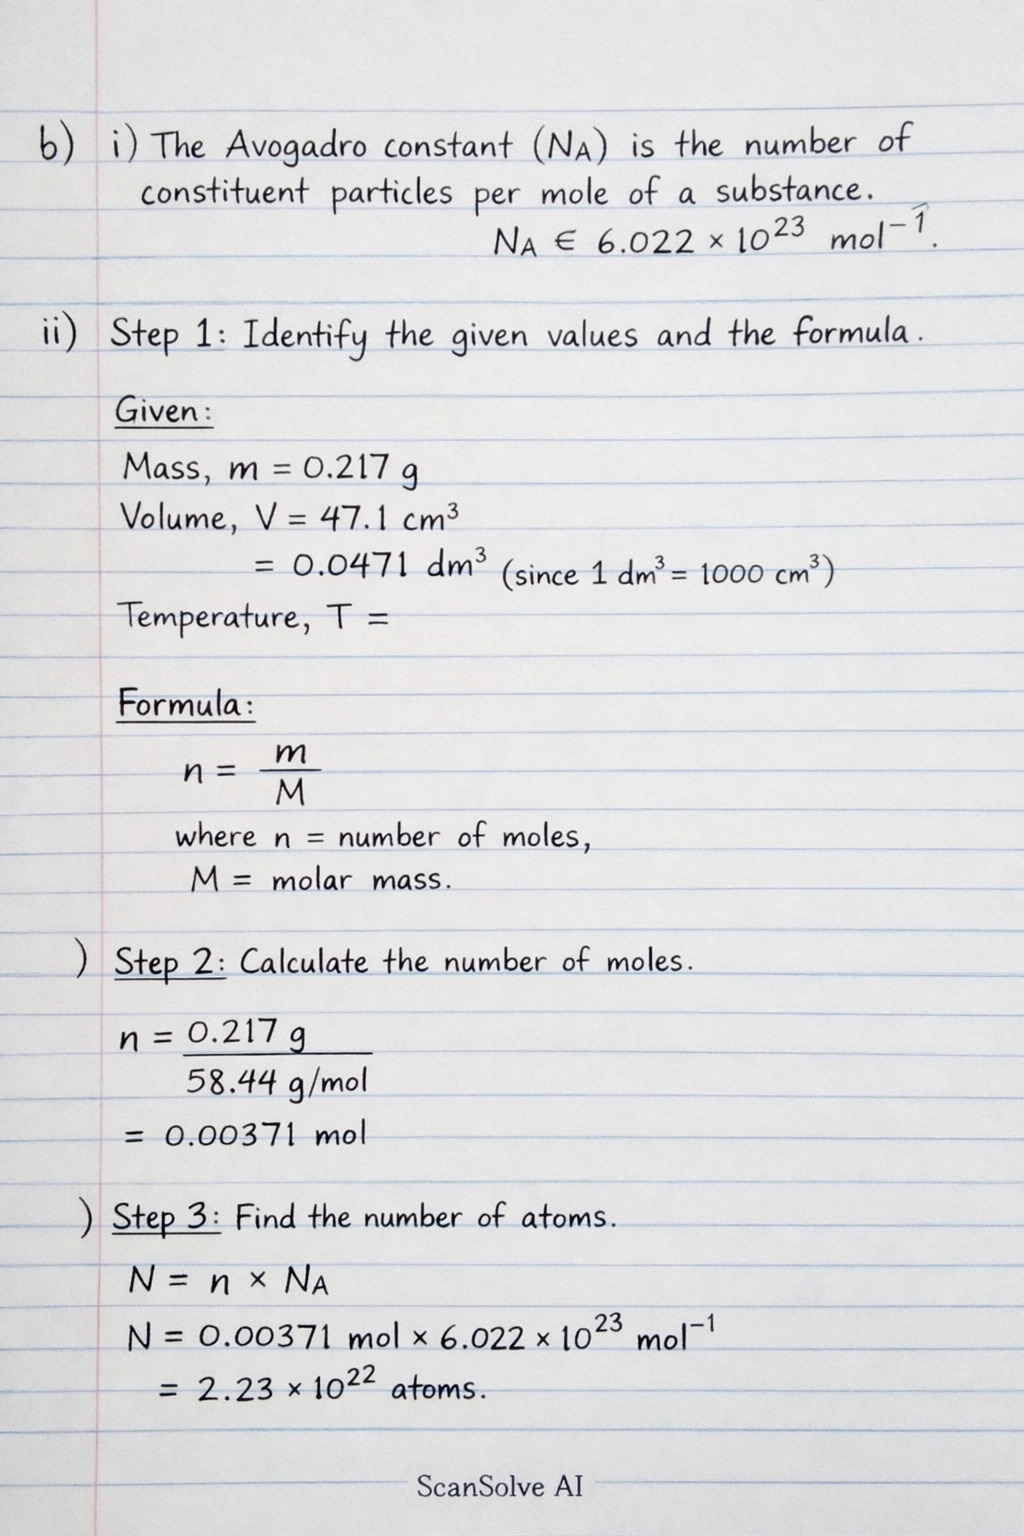 b) i) The Avogadro constant (NA) is the number of
constituent particles per mole of a substance.
NA ∈ 6.022 × 10²³ mol⁻¹.
ii) Step 1: Identify the given values and the formula.
Given:
Mass, m = 0.217 g
Volume, V = 47.1 cm³
= 0.0471 dm³ (since 1 dm³ = 1000 cm³)
Temperature, T =
Formula:
n = m/M
where n = number of moles,
M = molar mass.
) Step 2: Calculate the number of moles.
n = 0.217 g
58.44 g/mol
= 0.00371 mol
) Step 3: Find the number of atoms.
N = n × NA
N = 0.00371 mol × 6.022 × 10²³ mol⁻¹
= 2.23 × 10²² atoms.
ScanSolve AI